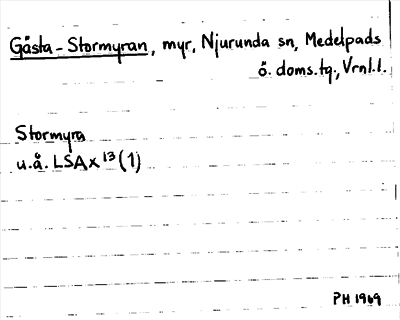 Gåsta-Stormyran, myr, Njurunda sn, Medelpads
ö. doms.tg., Vrnl.l.
Stormyra
u.å. LSA x 13 (1)
PH 1969